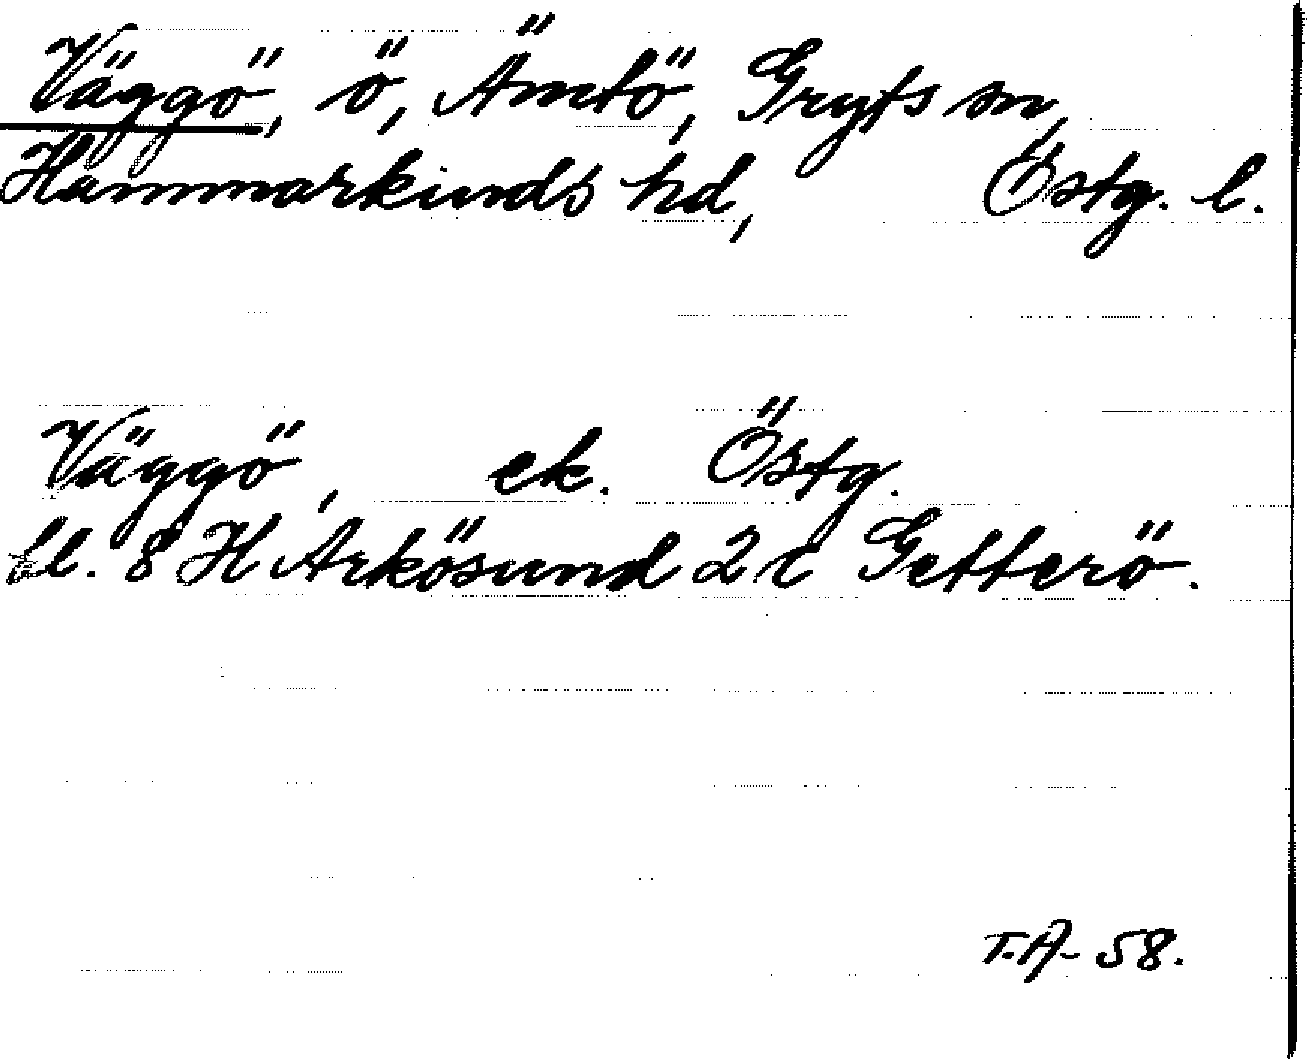 Väggö, ö, Ämtö, Gryts sn,
Hammarkinds hd, Östg. l.
Väggö, ek. Östg.
bl. 8 H Arkösund 2 c Getterö.
T.A-58.